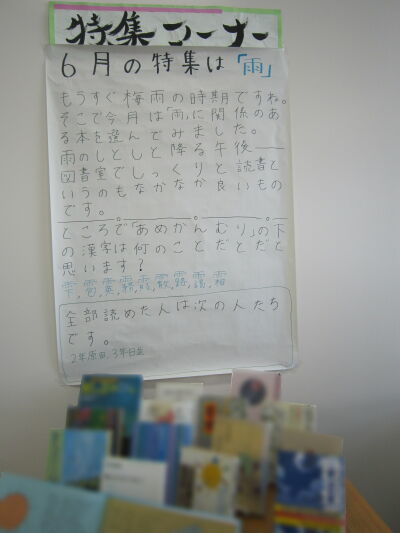 特集コーナー
6月の特集は「雨」
もうすぐ梅雨の時期ですね。
そこで今月は「雨」に関係のあ
る本を選んでみました。
雨のしとしと降る午後――
図書室でしっくりと読書と
いうのもなかなか良いもの
です。
ところで「あめかんむり」の下
の漢字は何のことだとだと
思います?
全部読めた人は次の人たち
です。